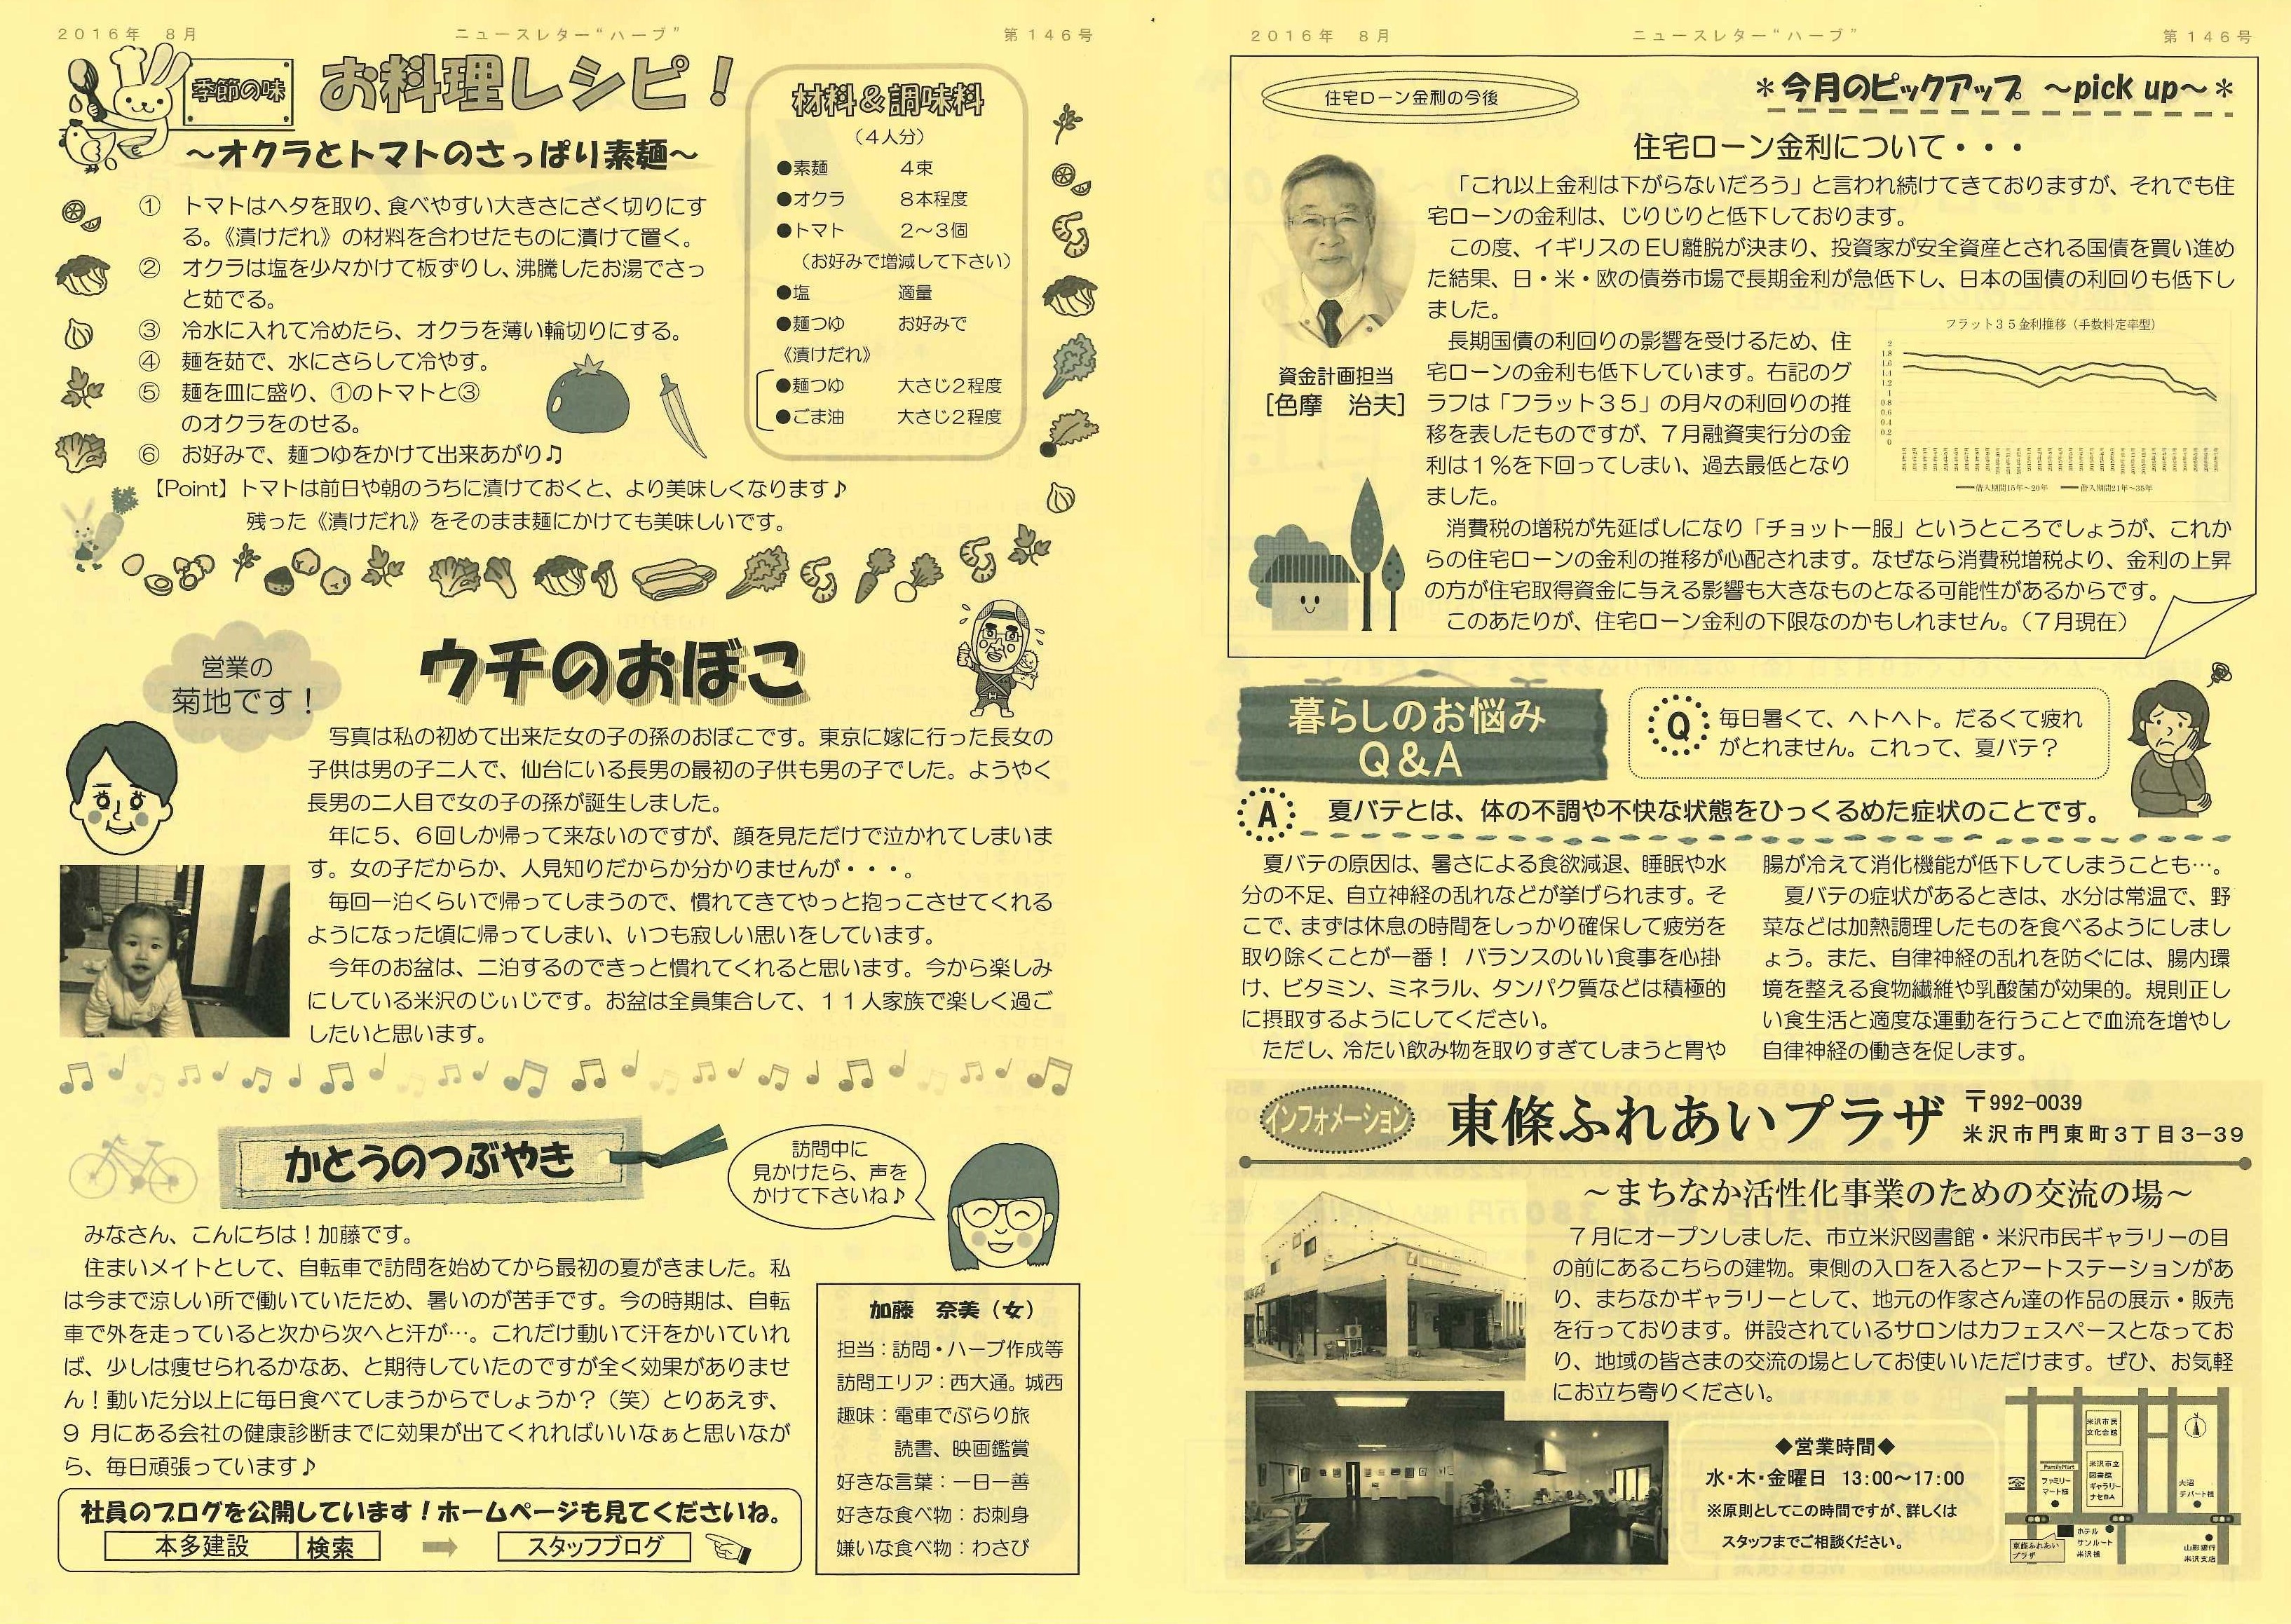 2016年 8月
ニュースレター“ハーブ”
第146号
季節の味
お料理レシピ！
～オクラとトマトのさっぱり素麺～
① トマトはヘタを取り、食べやすい大きさにざく切りにす
る。《漬けだれ》の材料を合わせたものに漬けて置く。
② オクラは塩を少々かけて板ずりし、沸騰したお湯でさっ
と茹でる。
③ 冷水に入れて冷めたら、オクラを薄い輪切りにする。
④ 麺を茹で、水にさらして冷やす。
⑤ 麺を皿に盛り、①のトマトと③
のオクラをのせる。
⑥ お好みで、麺つゆをかけて出来あがり♫
【Point】トマトは前日や朝のうちに漬けておくと、より美味しくなります♪
残った《漬けだれ》をそのまま麺にかけても美味しいです。
材料＆調味料
（4人分）
●素麺 4束
●オクラ 8本程度
●トマト 2～3個
（お好みで増減して下さい）
●塩 適量
●麺つゆ お好みで
《漬けだれ》
●麺つゆ 大さじ2程度
●ごま油 大さじ2程度
営業の
菊地です！
ウチのおぼこ
写真は私の初めて出来た女の子の孫のおぼこです。東京に嫁に行った長女の
子供は男の子二人で、仙台にいる長男の最初の子供も男の子でした。ようやく
長男の二人目で女の子の孫が誕生しました。
年に5、6回しか帰って来ないのですが、顔を見ただけで泣かれてしまいま
す。女の子だからか、人見知りだからか分かりませんが・・・。
毎回一泊くらいで帰ってしまうので、慣れてきてやっと抱っこさせてくれる
ようになった頃に帰ってしまい、いつも寂しい思いをしています。
今年のお盆は、二泊するのできっと慣れてくれると思います。今から楽しみ
にしている米沢のじぃじです。お盆は全員集合して、11人家族で楽しく過ご
したいと思います。
かとうのつぶやき
訪問中に
見かけたら、声を
かけて下さいね♪
みなさん、こんにちは！加藤です。
住まいメイトとして、自転車で訪問を始めてから最初の夏がきました。私
は今まで涼しい所で働いていたため、暑いのが苦手です。今の時期は、自転
車で外を走っていると次から次へと汗が…。これだけ動いて汗をかいていれ
ば、少しは痩せられるかなあ、と期待していたのですが全く効果がありませ
ん！動いた分以上に毎日食べてしまうからでしょうか？（笑）とりあえず、
9 月にある会社の健康診断までに効果が出てくれればいいなぁと思いなが
ら、毎日頑張っています♪
加藤 奈美（女）
担当：訪問・ハーブ作成等
訪問エリア：西大通。城西
趣味：電車でぶらり旅
読書、映画鑑賞
好きな言葉：一日一善
好きな食べ物：お刺身
嫌いな食べ物：わさび
社員のブログを公開しています！ホームページも見てくださいね。
本多建設 検索 スタッフブログ
2016年 8月
ニュースレター“ハーブ”
第146号
住宅ローン金利の今後
＊今月のピックアップ ～pick up～＊
住宅ローン金利について・・・
「これ以上金利は下がらないだろう」と言われ続けてきておりますが、それでも住
宅ローンの金利は、じりじりと低下しております。
この度、イギリスのEU離脱が決まり、投資家が安全資産とされる国債を買い進め
た結果、日・米・欧の債券市場で長期金利が急低下し、日本の国債の利回りも低下し
ました。
長期国債の利回りの影響を受けるため、住
宅ローンの金利も低下しています。右記のグ
ラフは「フラット35」の月々の利回りの推
移を表したものですが、7月融資実行分の金
利は1％を下回ってしまい、過去最低となり
ました。
消費税の増税が先延ばしになり「チョット一服」というところでしょうが、これか
らの住宅ローンの金利の推移が心配されます。なぜなら消費税増税より、金利の上昇
の方が住宅取得資金に与える影響も大きなものとなる可能性があるからです。
このあたりが、住宅ローン金利の下限なのかもしれません。（7月現在）
資金計画担当
［色摩 治夫］
フラット35金利推移（手数料定率型）
2
1.8
1.6
1.4
1.2
1
0.8
0.6
0.4
0.2
0
借入期間15年～20年 借入期間21年～35年
暮らしのお悩み
Q＆A
Q 毎日暑くて、ヘトヘト。だるくて疲れ
がとれません。これって、夏バテ？
A 夏バテとは、体の不調や不快な状態をひっくるめた症状のことです。
夏バテの原因は、暑さによる食欲減退、睡眠や水
分の不足、自立神経の乱れなどが挙げられます。そ
こで、まずは休息の時間をしっかり確保して疲労を
取り除くことが一番！ バランスのいい食事を心掛
け、ビタミン、ミネラル、タンパク質などは積極的
に摂取するようにしてください。
ただし、冷たい飲み物を取りすぎてしまうと胃や
腸が冷えて消化機能が低下してしまうことも…。
夏バテの症状があるときは、水分は常温で、野
菜などは加熱調理したものを食べるようにしまし
ょう。また、自律神経の乱れを防ぐには、腸内環
境を整える食物繊維や乳酸菌が効果的。規則正し
い食生活と適度な運動を行うことで血流を増やし
自律神経の働きを促します。
インフォメーション
東條ふれあいプラザ
〒992-0039
米沢市門東町3丁目3-39
～まちなか活性化事業のための交流の場～
7月にオープンしました、市立米沢図書館・米沢市民ギャラリーの目
の前にあるこちらの建物。東側の入口を入るとアートステーションがあ
り、まちなかギャラリーとして、地元の作家さん達の作品の展示・販売
を行っております。併設されているサロンはカフェスペースとなってお
り、地域の皆さまの交流の場としてお使いいただけます。ぜひ、お気軽
にお立ち寄りください。
◆営業時間◆
水・木・金曜日 13:00～17:00
※原則としてこの時間ですが、詳しくは
スタッフまでご相談ください。
米沢市民
文化会館
FamilyMart
ファミリー
マート様
米沢市立
図書館
ギャラリー
ナセBA
大沼
デパート様
ホテル
サンルート
米沢様
東條ふれあい
プラザ
山形銀行
米沢支店